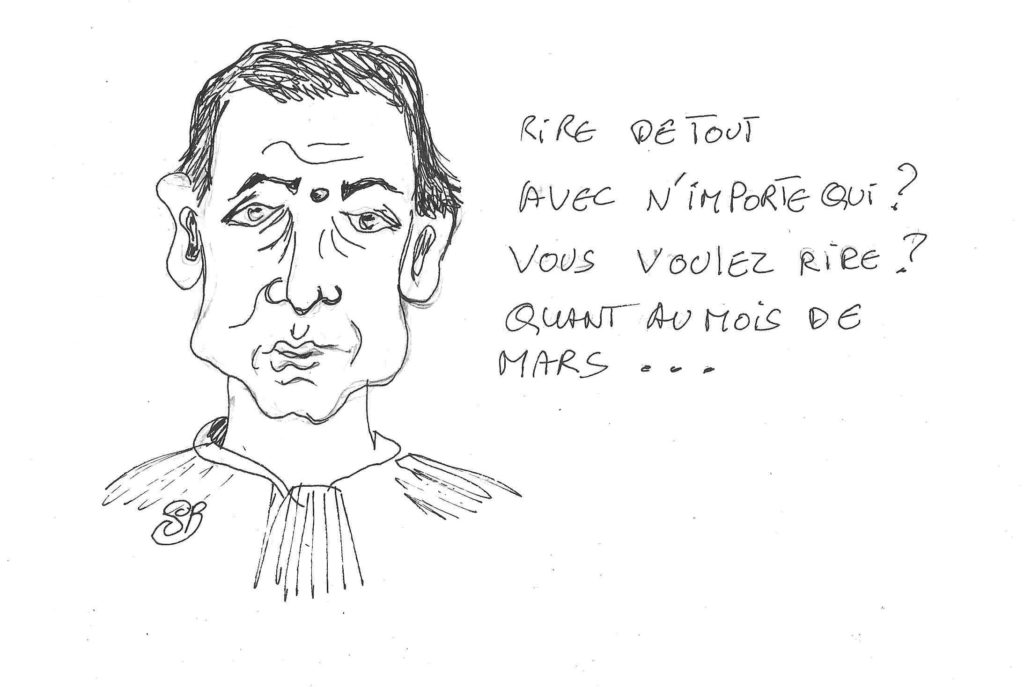 RIRE DE TOUT
AVEC N'IMPORTE QUI ?
VOUS VOULEZ RIRE ?
QUANT AU MOIS DE
MARS ...
SB